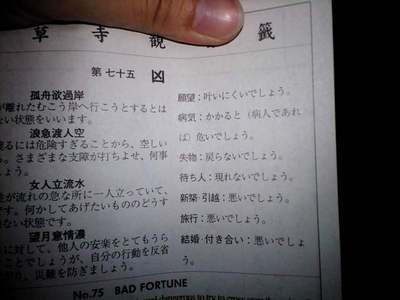 草寺観 籤
第七十五 凶
孤舟欲過岸
が離れたむこう岸へ行こうとするとは
ない状態をいいます。
浪急渡人空
渡るには危険すぎることから、空しい
う。さまざまな支障が打ちよせ、何事
しょう。
女人立流水
性が流れの急な所に一人立っていて、
です。何かしてあげたいもののどうす
ない状態です。
望月意情濃
に対して、他人の安楽をとてもうら
ことでしょうが、自分の行動を反省
守り、災難を防ぎましょう。
願望:叶いにくいでしょう。
病気:かかると(病人であれ
ば)危いでしょう。
失物:戻らないでしょう。
待ち人:現れないでしょう。
新築・引越:悪いでしょう。
旅行:悪いでしょう。
結婚・付き合い:悪いでしょ
う。
No.75 BAD FORTUNE